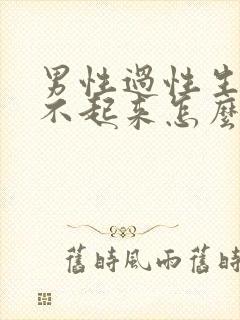 男性過性生
不起来怎麼
舊時風雨舊時